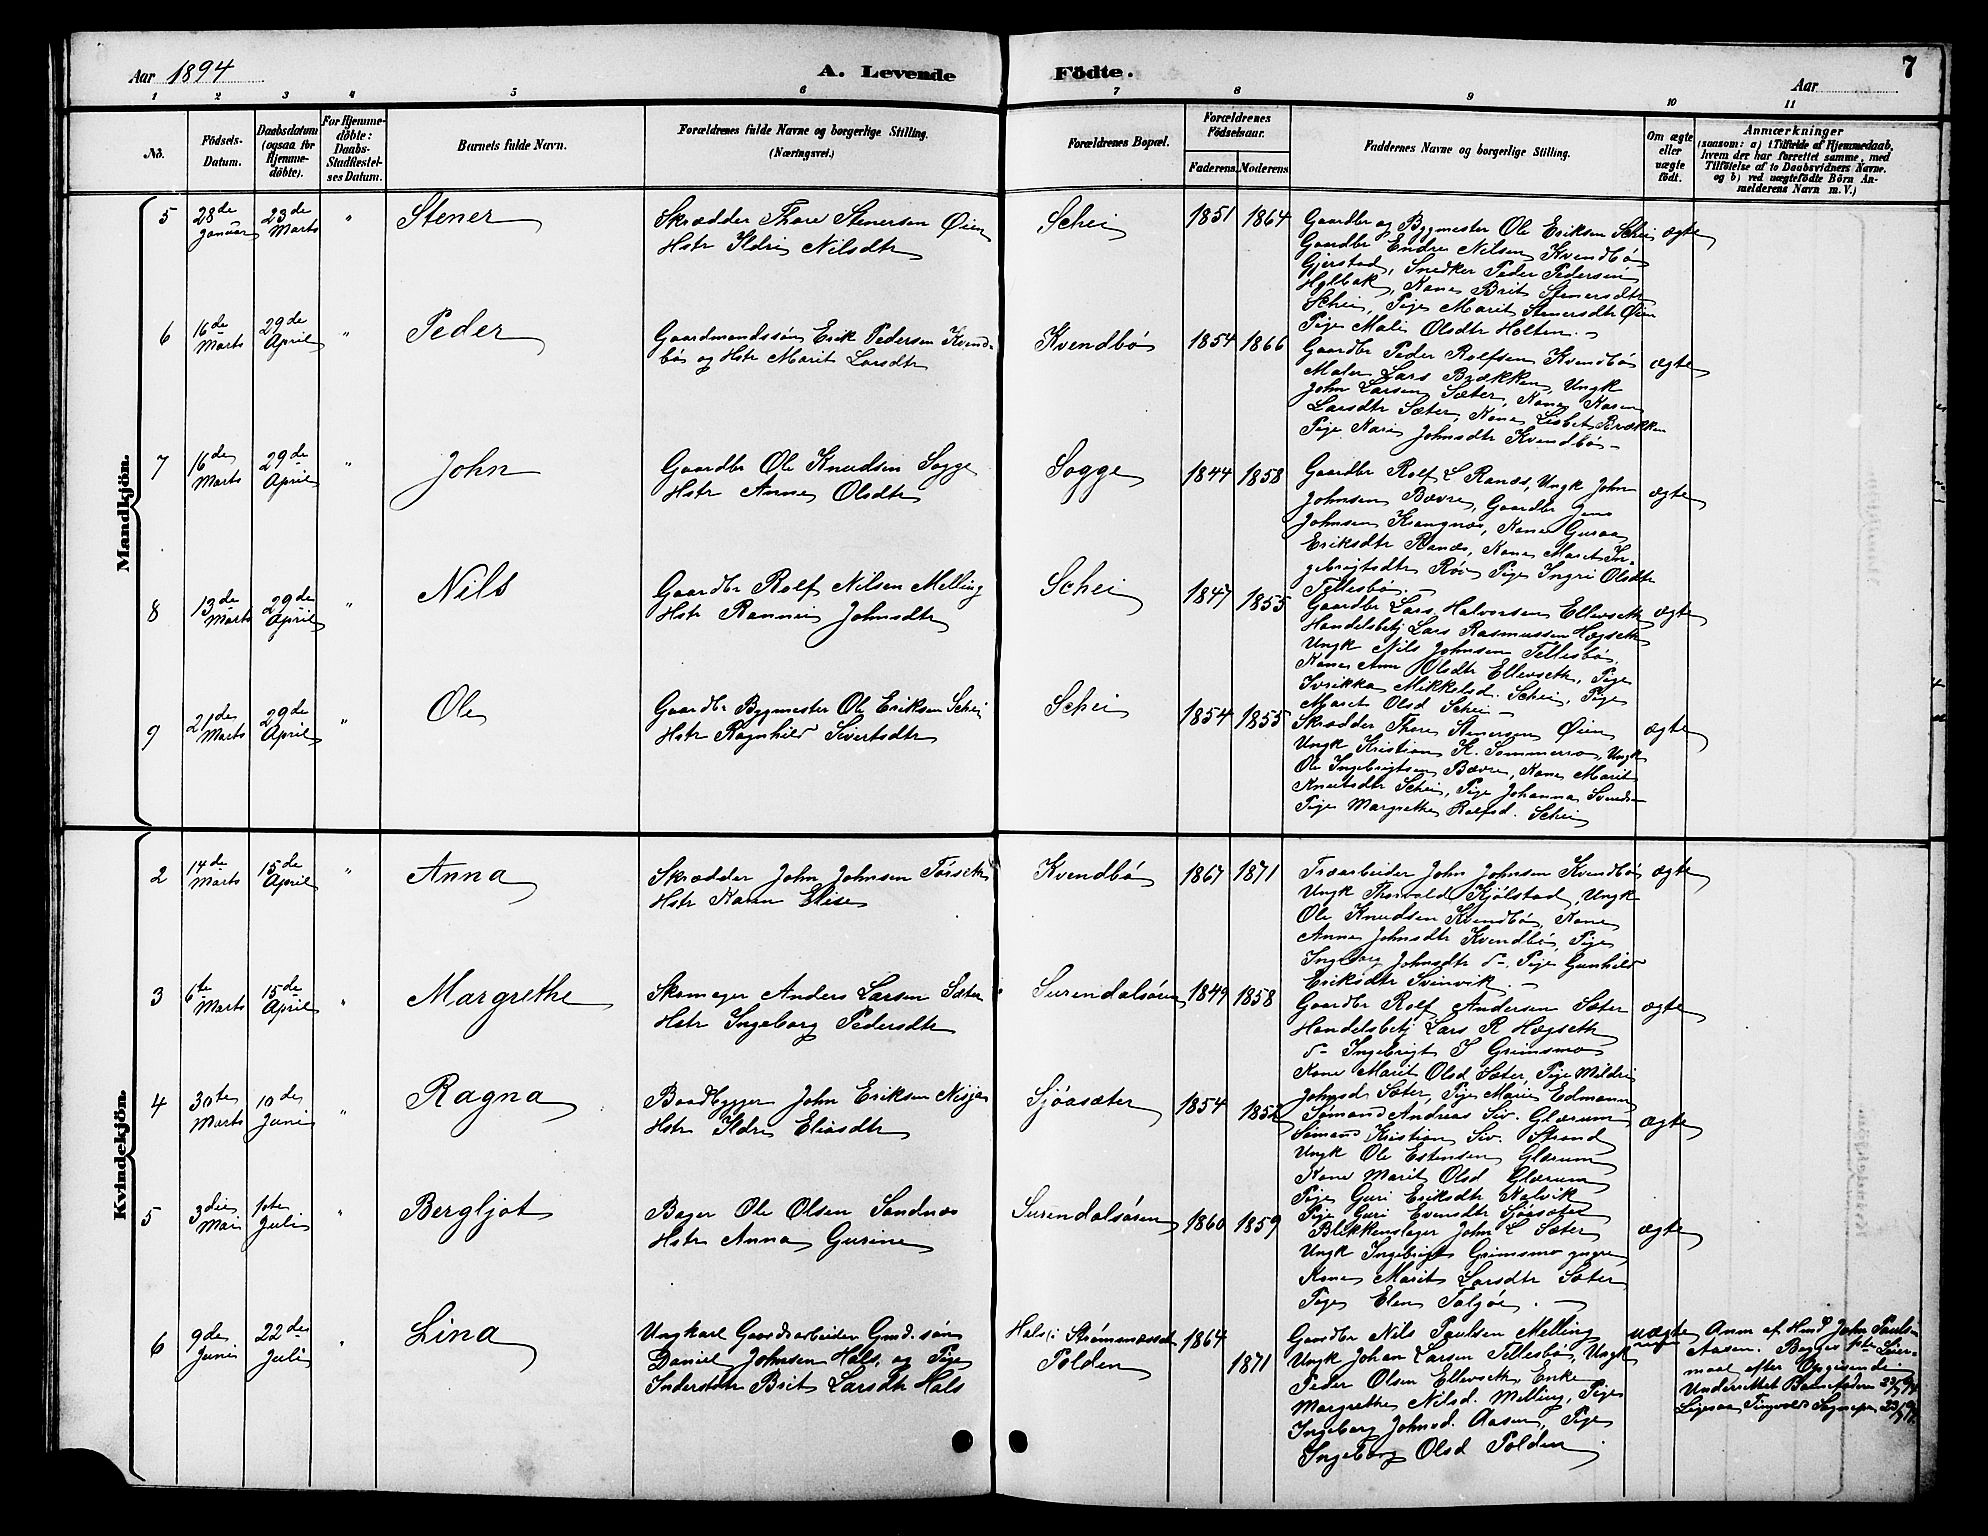 Aar 1894
A. Levende
Födte.
Aar
7
1 2 3 4 5 6 7 8 9 10 11
No.
Födsels-Datum.
Daabsdatum (ogsaa for Hjemme-döbte).
For Hjemme-döbte: Daabs-Stadfæstel-ses Datum.
Barnets fulde Navn.
Forældrenes fulde Navne og borgerlige Stilling.
(Næringsvei.)
Forældrenes Bopæl.
Forældrenes Födselsaar.
Faderens. Moderens.
Faddernes Navne og borgerlige Stilling.
Om ægte eller uægte födt.
Anmærkninger
(saasom: a) i Tilfælde af Hjemmedaab, hvem der har forrettet samme, med Tilföielse af to Daabsvidners Navne, og b) ved uægtefödte Börn An-melderens Navn m. V.)
Mandkjön.
5 28de Januar 23de Marts " Stener
Skrædder Thore Stenersen Øien
Hstr Ildri Nilsdtr
Schei 1851 1864
Gaardbr og Bygmester Ole Eriksen Schei ægte
Gaardbr Endre Nilsen Kvendbø
Gjerstad, Snedker Peder Pedersen
Holbak, Kone Brit Stenersdtr
Schei, Pige Marit Stenersdtr Øien
Pige Mali Olsdtr Holten.
6 16de Marts 29de April " Peder
Gaardmandssøn Erik Pedersen Kvend-
bø og Hstr Marit Larsdtr
Kvendbø 1854 1866
Gaardbr Peder Rolfsen Kvendbø ægte
Maler Lars Brækken, Ungk
John Larsen Sæter, Kone Karen
Larsdtr Sæter, Kone Lisbet Brækken
Pige Kari Johnsdtr Kvendbø
7 16de Marts 29de April " John
Gaardbr Ole Knudsen Sogge
Hstr Anne Olsdtr
Sogge 1844 1858
Gaardbr Rolf L Ranæs, Ungk John ægte
Johnsen Bævre, Gaardbr Jens
Johnsen Kvangnæs, Kone Guraa
Eriksdtr Ranæs, Kone Maret In-
gebrigtsdtr Røv Pige Ingri Olsdtr
Tellesbø.
8 13de Marts 29de April " Nils
Gaardbr Rolf Nilsen Melling
Hstr Rannei Johnsdtr
Schei 1847 1855
Gaardbr Lars Halvorsen Ellevseth ægte
Handelsbetj Lars Rasmussen Hægseth
Ungk Nils Johnsen Tellesbø
Kone Ane Olsdtr Ellevseth, Pige
Mikkelsd. Schei, Pige
Maret Olsd Schei
9 21de Marts 29de April " Ole
Gaardbr Bygmester Ole Eriksen Schei
Hstr Ragnhild Sivertsdtr
Schei 1854 1855
Skrædder Thore Stenersen Øien ægte
Ungk Kristian K. Sommerro, Ungk
Ole Ingebrigtsen Bævre, Kone Marit
Knutsdtr Schei, Pige Johanna
Pige Margrethe Rolfsd. Schei
Kvindekjön.
2 14de Marts 15de April " Anna
Skrædder John Johnsen Torseth
Hstr Karen Elise
Kvendbø 1867 1871
Træarbeider John Johnsen Kvendbø ægte
Ungk Thorvald Kjølstad, Ungk
Ole Knudsen Kvendbø, Kone
Anne Johnsdtr Kvendbø, Pige
Ingeborg Johnsdtr Pige Gunhild
Eriksdtr Svinvik
3 6te Marts 15de April " Margrethe
Skomager Anders Larsen Sæter
Hstr Ingeborg Pedersdtr
Surendalsøren 1849 1858
Gaardbr Rolf Andersen Sæter ægte
Handelsbetj Lars R Hægseth
Ingebrigt J Grimsmo
Kone Marit Olsd Sæter, Pige Mildri
Johnsd Sæter, Pige Marie Edmann
4 30te Marts 10de Juni " Ragna
Baadbygger John Eriksen Nisja
Hstr Ildri Eliasdtr
Sjøasæter 1854 1852
Sømand Andreas Siv. Glærum ægte
Sømand Kristian Siv. Strand
Ungk Ole Estensen Glærum
Kone Marit Olsd Glærum
Pige Guri Eriksdtr Kalvik
Pige Guri Evendtr Sjøasæter
5 3die Mai 1ste Juli " Bergljot
Bager Ole Olsen Sandnes
Hstr Anna Gurine
Surendalsøren 1860 1859
Blikkenslager John L Sæter ægte
Ungk Ingebrigt Grimsmo yngre
Kone Marit Larsdtr Sæter
Pige Elen Talgø.
6 9de Juni 22de Juli " Lina
Ungkarl Gaardsarbeider Gmd. søn
Daniel Johnsen Hals, og Pige
Inderstdtr Brit Larsdtr Hals
Hals i Strømsnesset
Polden
1864
1871
Gaardbr Nils Paulsen Melling uægte
Ungk Johan Larsen Tellesbø, Ungk
Peder Olsen Ellevseth Enke
Margrethe Nilsd. Melling, Pige
Ingeborg Johnsd. Aasen, Pige
Ingeborg Olsd Polden
Anm af Hmd John Pauls-
Aasen. Begges 1ste Leier-
maal efter Opgivende.
Underrettet Barnefaderen 23/7 94
Ligesaa Tingvold Sognepr 23/7 94.